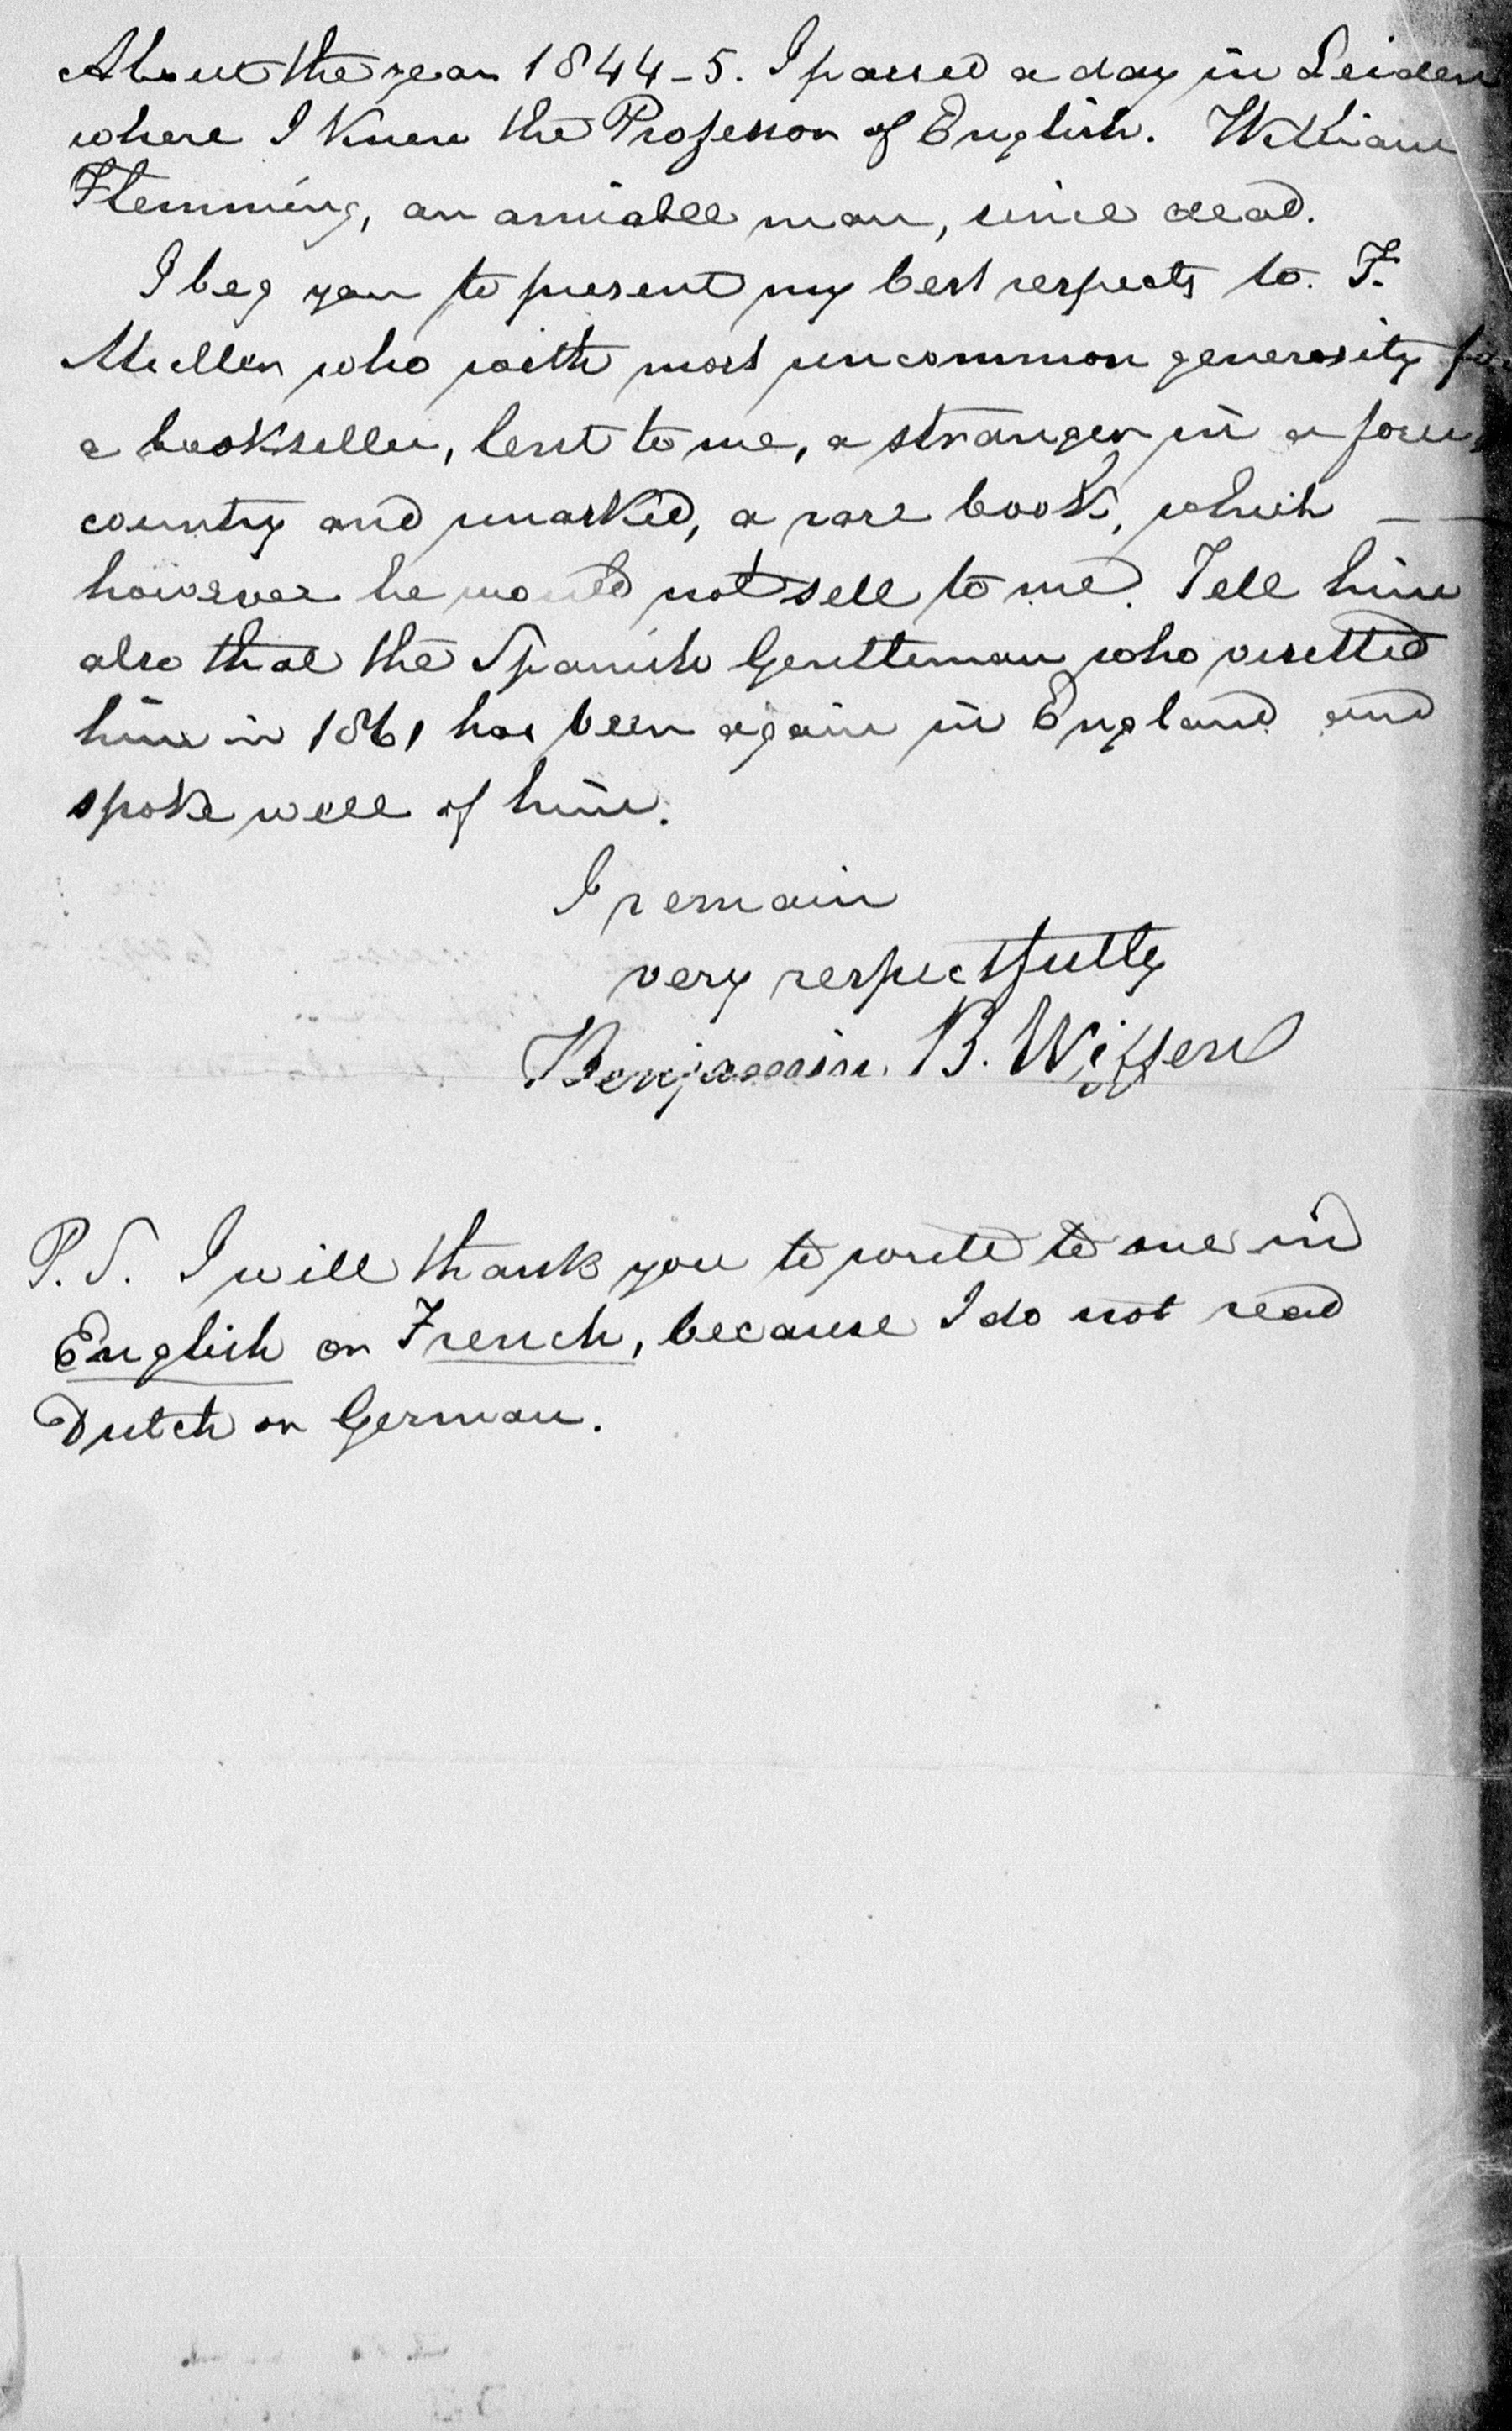 About the year 1844-5. I passed a day in Leiden
where I knew the Professor of English. William
Flemming, an amiable man, since dead.
I beg you to present my best respects to. F.
Muller who with most uncommon generosity for
a bookseller, lent to me, a stranger in a
country and unasked, a rare book, which - -
however he would not sell to me. Tell him
also that the Spanish Gentleman who visitted
him in 1861 has been again in England and
spoke well of him.
I remain
very respectfully
Benjamin. B. Wiffen
P.S. I will thank you to write to me in
English or French, because I do not read
Dutch or German.